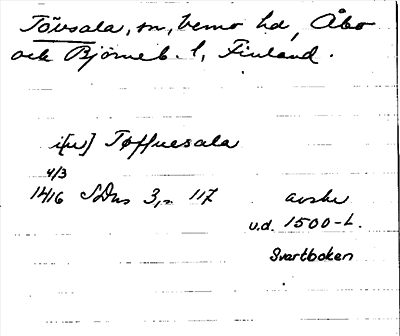 Tövsala, sn, Vemo hd, Åbo
och Björneb. l, Finland.
i[u] Tøffuesala
4/3
1416 SDns 3, s 117 avskr
u.d. 1500-t.
Svartboken